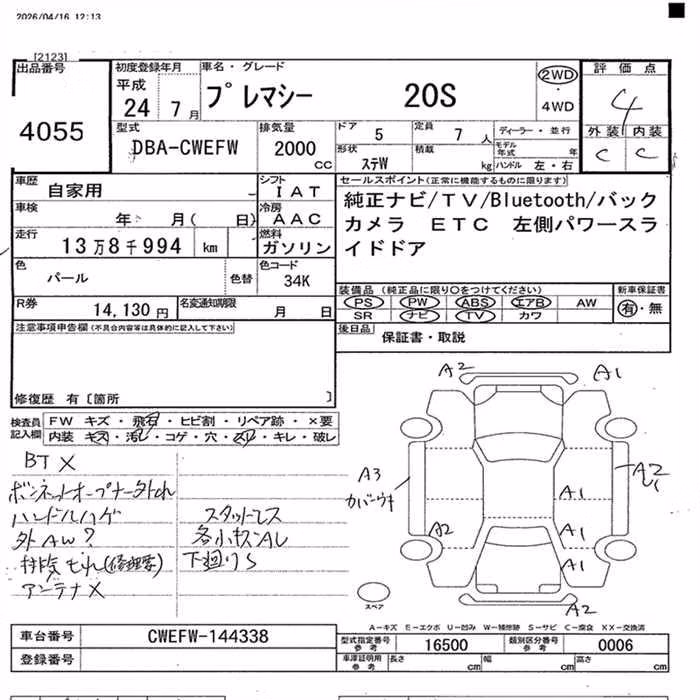 2026/04/16 12:13
[2123]
出品番号
4055
初度登録年月
平成
24 7月
車名・グレード
プレマシー 20S
2WD
4WD
評価点
4
外装 内装
C C
型式
DBA-CWEFW
排気量
2000
cc
ドア 5
定員 7 人
ディーラー・並行
形状 ステW
積載 kg
モデル年式 年
ハンドル 左・右
車歴 自家用
シフト IAT
車検 年 月( 日)
冷房 AAC
走行 13万8千994 km
燃料 ガソリン
色 パール
色替
色コード 34K
R券 14,130円
名変通知期限 月 日
セールスポイント(正常に機能するものに限ります)
純正ナビ/TV/Bluetooth/バック
カメラ ETC 左側パワースラ
イドドア
装備品 (純正品に限り○をつけてください)
新車保証書
PS PW ABS エアB AW
SR ナビ TV カワ
有・無
後日品 保証書・取説
注意事項申告欄(不具合内容等は具体的に記入して下さい)
修復歴 有〔箇所 〕
検査員
記入欄
FW キズ・飛石・ヒビ割・リペア跡・×要
内装 キズ・汚レ・コゲ・穴・スレ・キレ・破レ
BT X
ボンネットオープナー外れ
ハンドルハゲ
外AW?
排気もれ(修理要)
アンテナX
スタットレス
各小キズAU
下廻りS
A2
A1
A3
カバーウキ
A2
A1
A2
A1
A1
A2
スペア
A−キズ E−エクボ U−凹み W−補修跡 S−サビ C−腐食 XX−交換済
車台番号 CWEFW-144338
登録番号
型式指定番号
参考
16500
類別区分番号
参考
0006
車庫証明用
参考
長さ cm 幅 cm 高さ cm